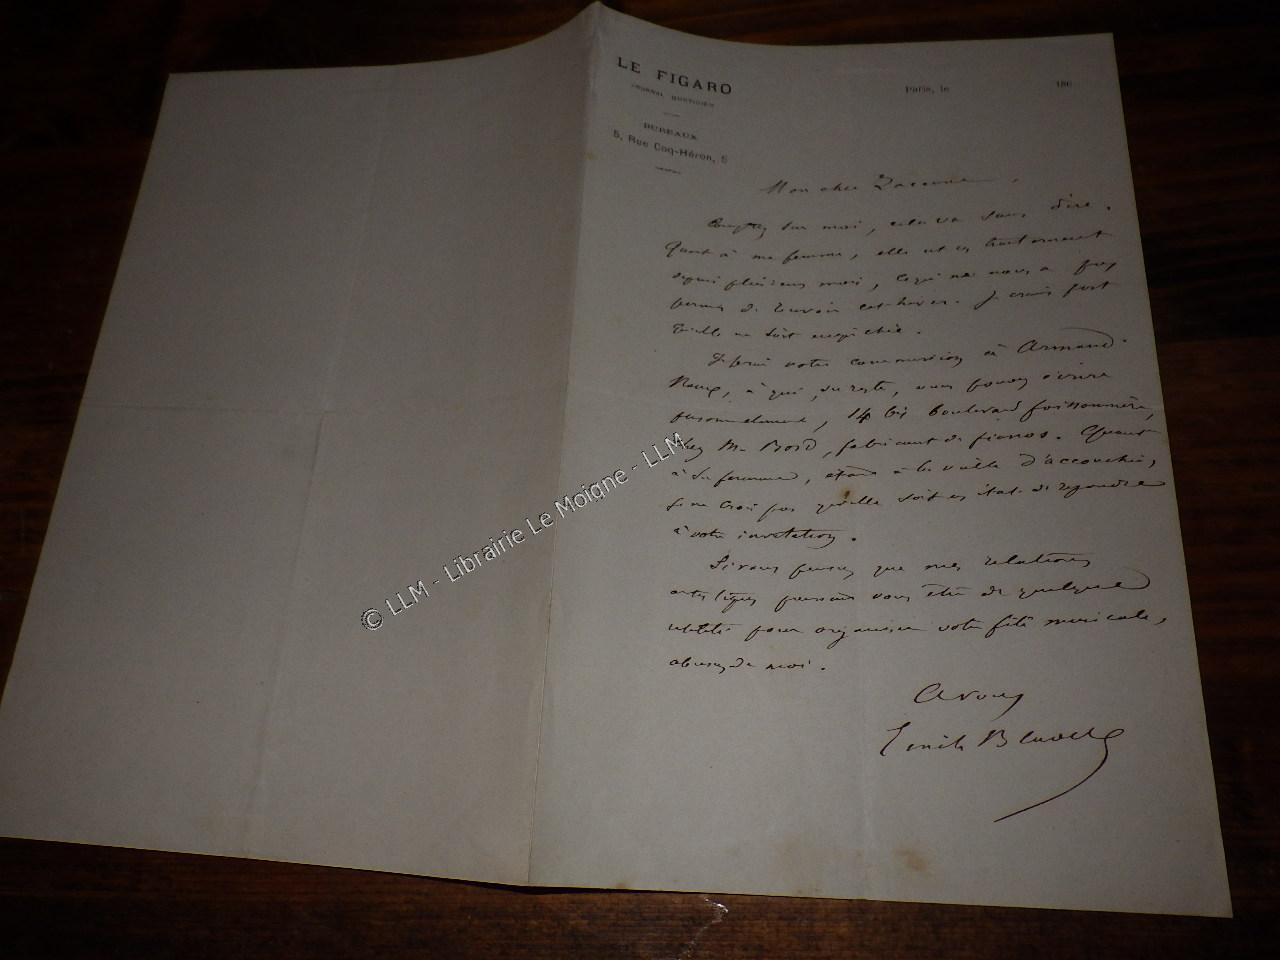 LE FIGARO
JOURNAL QUOTIDIEN
BUREAUX
5, Rue Coq-Héron, 5
Paris, le 186
Mon cher
Comptez sur moi, cela va sans dire.
Quant à ma femme, elle est en traitement
depuis plusieurs mois, ce qui ne nous a pas
permis de recevoir cet hiver. Je crains fort
qu'elle ne soit empêchée.
Je ferai votre commission à Armand
Roux, à qui, du reste, vous pouvez écrire
personnellement, 14 bis boulevard poissonnière,
chez M. Bord, fabricant de pianos. Quant
à sa femme, étant à la veille d'accoucher,
je ne crois pas qu'elle soit en état de répondre
à votre invitation.
Si vous pensez que mes relations
artistiques puissent vous être de quelque
utilité pour organiser votre fête musicale,
abusez de moi.
A vous
Emile Blavet
© LLM - Librairie Le Moigne - LLM